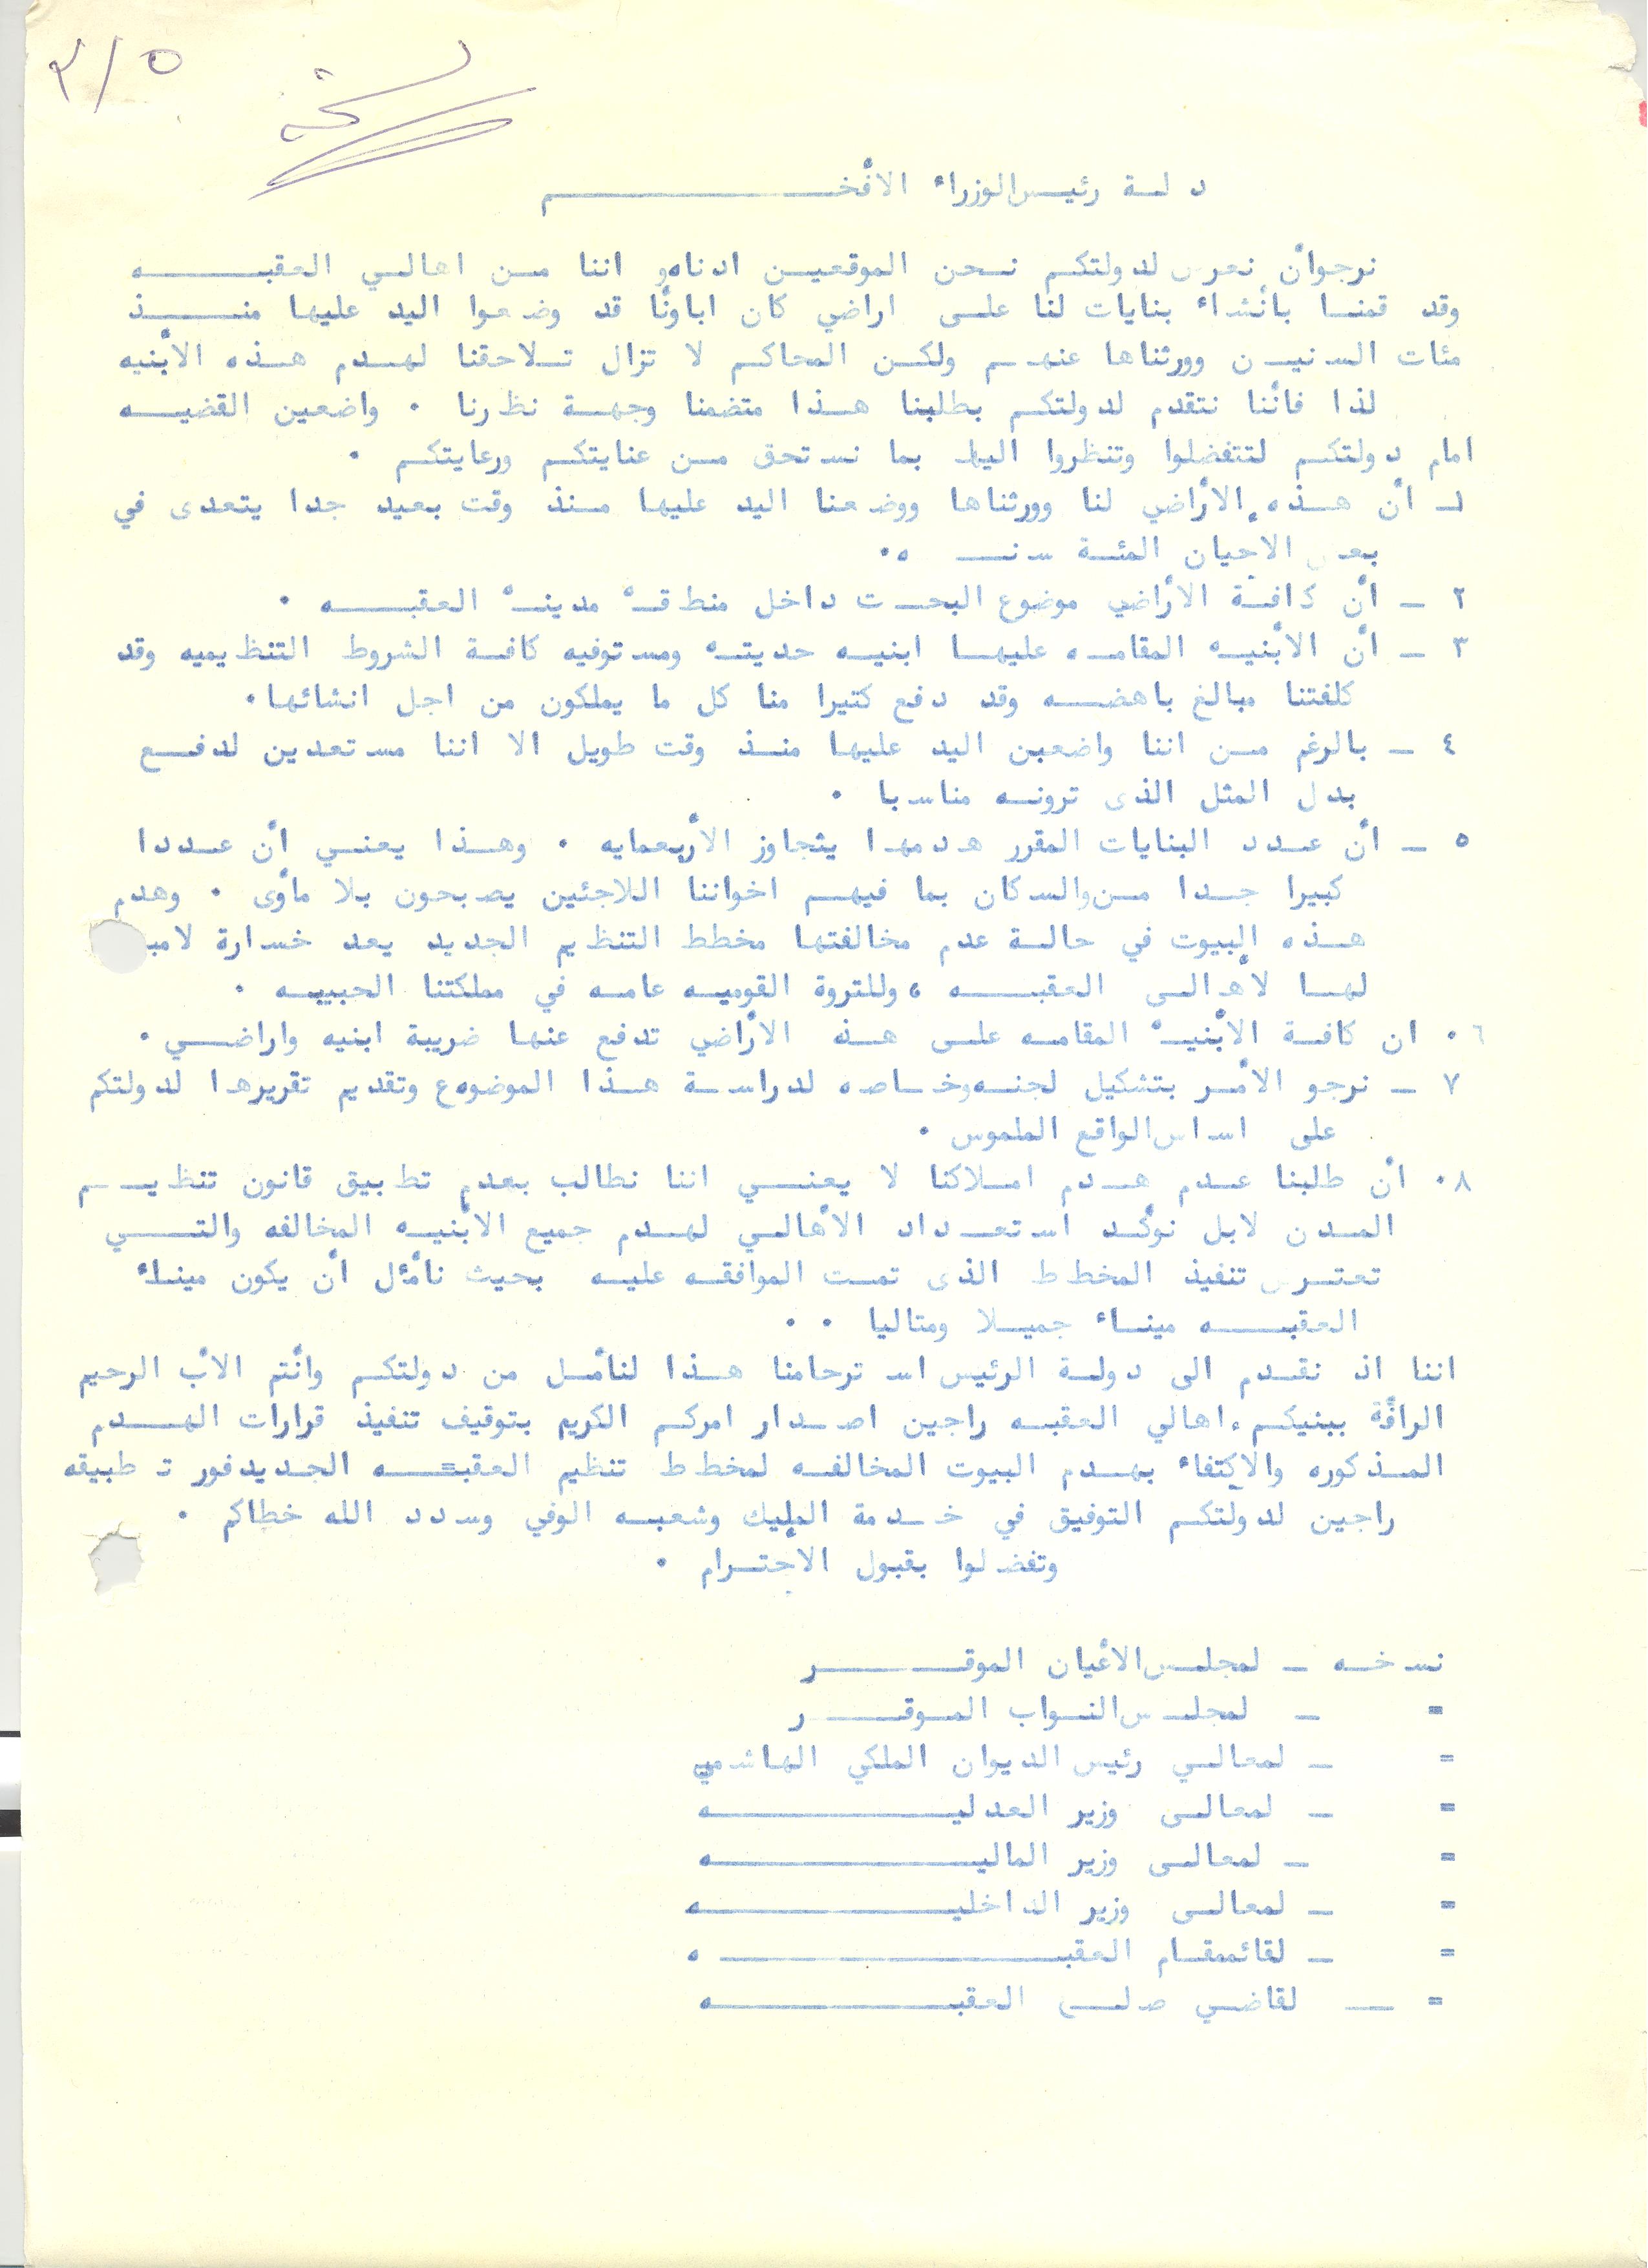 ٣/٥
نسخة
دولة رئيس الوزراء الأفخـــم
نرجوأن نعرض لدولتكم نحن الموقعين ادناه اننا من اهالي العقبـــه
وقد قمنا بانشاء بنايات لنا على اراضي كان اباونا قد وضعوا اليد عليها منـــذ
مئات السنين وورثناها عنهم ولكن المحاكم لا تزال تلاحقنا لهدم هذه الأبنيه
لذا فأننا نتقدم لدولتكم بطلبنا هذا متضمنا وجهة نظرنا . واضعين القضيه
امام دولتكم لتتفضلوا وتنظروا اليها بما نستحق من عنايتكم ورعايتكم .
١ـ أن هذه الأراضي لنا وورثناها ووضعنا اليد عليها منذ وقت بعيد جدا يتعدى في
بعض الاحيان المئة سنـــه .
٢ ـ أن كافة الأراضي موضوع البحث داخل منطقة مدينة العقبـــه .
٣ ـ أن الأبنيه المقامه عليها ابنيه حديته ومستوفيه كافة الشروط التنظيميه وقد
كلفتنا مبالغ باهضه وقد دفع كتيرا منا كل ما يملكون من اجل انشائها.
٤ ـ بالرغم من اننا واضعين اليد عليها منذ وقت طويل الا اننا مستعدين لدفع
بدل المثل الذى ترونه مناسبا .
٥ ـ أن عدد البنايات المقرر هدمها يتجاوز الأربعمايه . وهذا يعني أن عددا
كبيرا جدا من السكان بما فيهم اخواننا اللاجئين يصبحون بلا مأوى . وهدم
هذه البيوت في حالة عدم مخالفتها مخطط التنظيم الجديد يعد خسارة
لها لأهالى العقبـــه ، وللتروة القوميه عامه في مملكتنا الحبيبه .
٦. ان كافة الأبنية المقامه على هذه الأراضي تدفع عنها ضريبة ابنيه واراضي .
٧ ـ نرجو الأمر بتشكيل لجنه خاصه لدراسة هذا الموضوع وتقديم تقريرها لدولتكم
على اساس الواقع الملموس .
٨. أن طلبنا عدم هدم املاكنا لا يعني اننا نطالب بعدم تطبيق قانون تنظيم
المدن لابل نوأكد استعداد الأهالي لهدم جميع الأبنيه المخالفه والتي
تعترض تنفيذ المخطط الذى تمت الموافقه عليه بحيث نأمل أن يكون ميناء
العقبـــه ميناء جميلا ومتاليا . .
اننا اذ نقدم الى دولة الرئيس استرحامنا هذا لنأمل من دولتكم وأنتم الأب الرحيم
الرأفة ببنيكم اهالي العقبه راجين اصدار امركم الكريم بتوقيف تنفيذ قرارات الهدم
المذكوره والاكتفاء بهدم البيوت المخالفه لمخطط تنظيم العقبـــه الجديدفور تطبيقه
راجين لدولتكم التوفيق في خدمة المليك وشعبه الوفي وسدد الله خطاكم .
وتفضلوا بقبول الاحترام .
نسخه ـ لمجلس الأعيان الموقـــر
= ـ لمجلس النواب الموقـــر
= ـ لمعالي رئيس الديوان الملكي الهاشمي
= ـ لمعالى وزير العدليـــه
= ـ لمعالى وزير الماليـــه
= ـ لمعالى وزير الداخليـــه
= ـ لقائممقام العقبـــه
= ـ لقاضي صلح العقبـــه